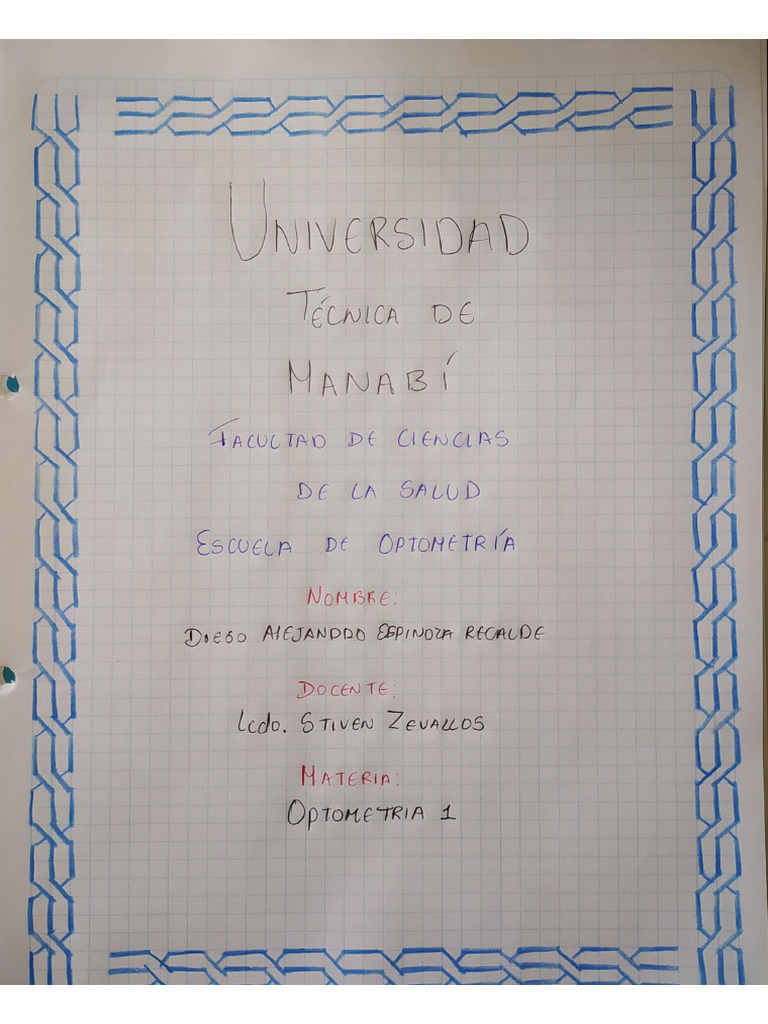 UNIVERSIDAD
TÉCNICA DE
MANABÍ
FACULTAD DE CIENCIAS
DE LA SALUD
ESCUELA DE OPTOMETRÍA
NOMBRE:
DIEGO ALEJANDRO ESPINOZA RECALDE
DOCENTE:
Lcdo. STIVEN ZEVALLOS
MATERIA:
OPTOMETRIA 1